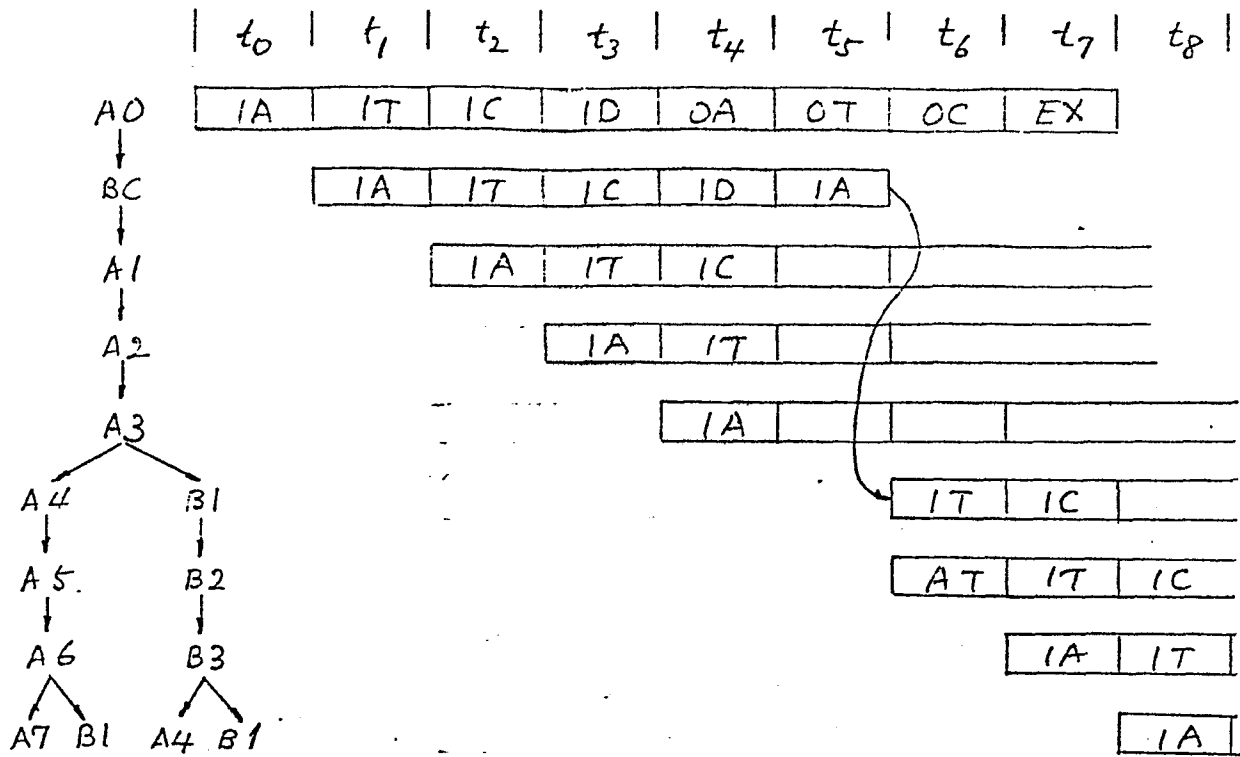 t0 t1 t2 t3 t4 t5 t6 t7 t8
A0 IA IT IC ID OA OT OC EX
BC IA IT IC ID IA
A1 IA IT IC
A2 IA IT
A3 IA
A4 B1 IT IC
A5. B2 AT IT IC
A6 B3 IA IT
A7 B1 A4 B1 IA